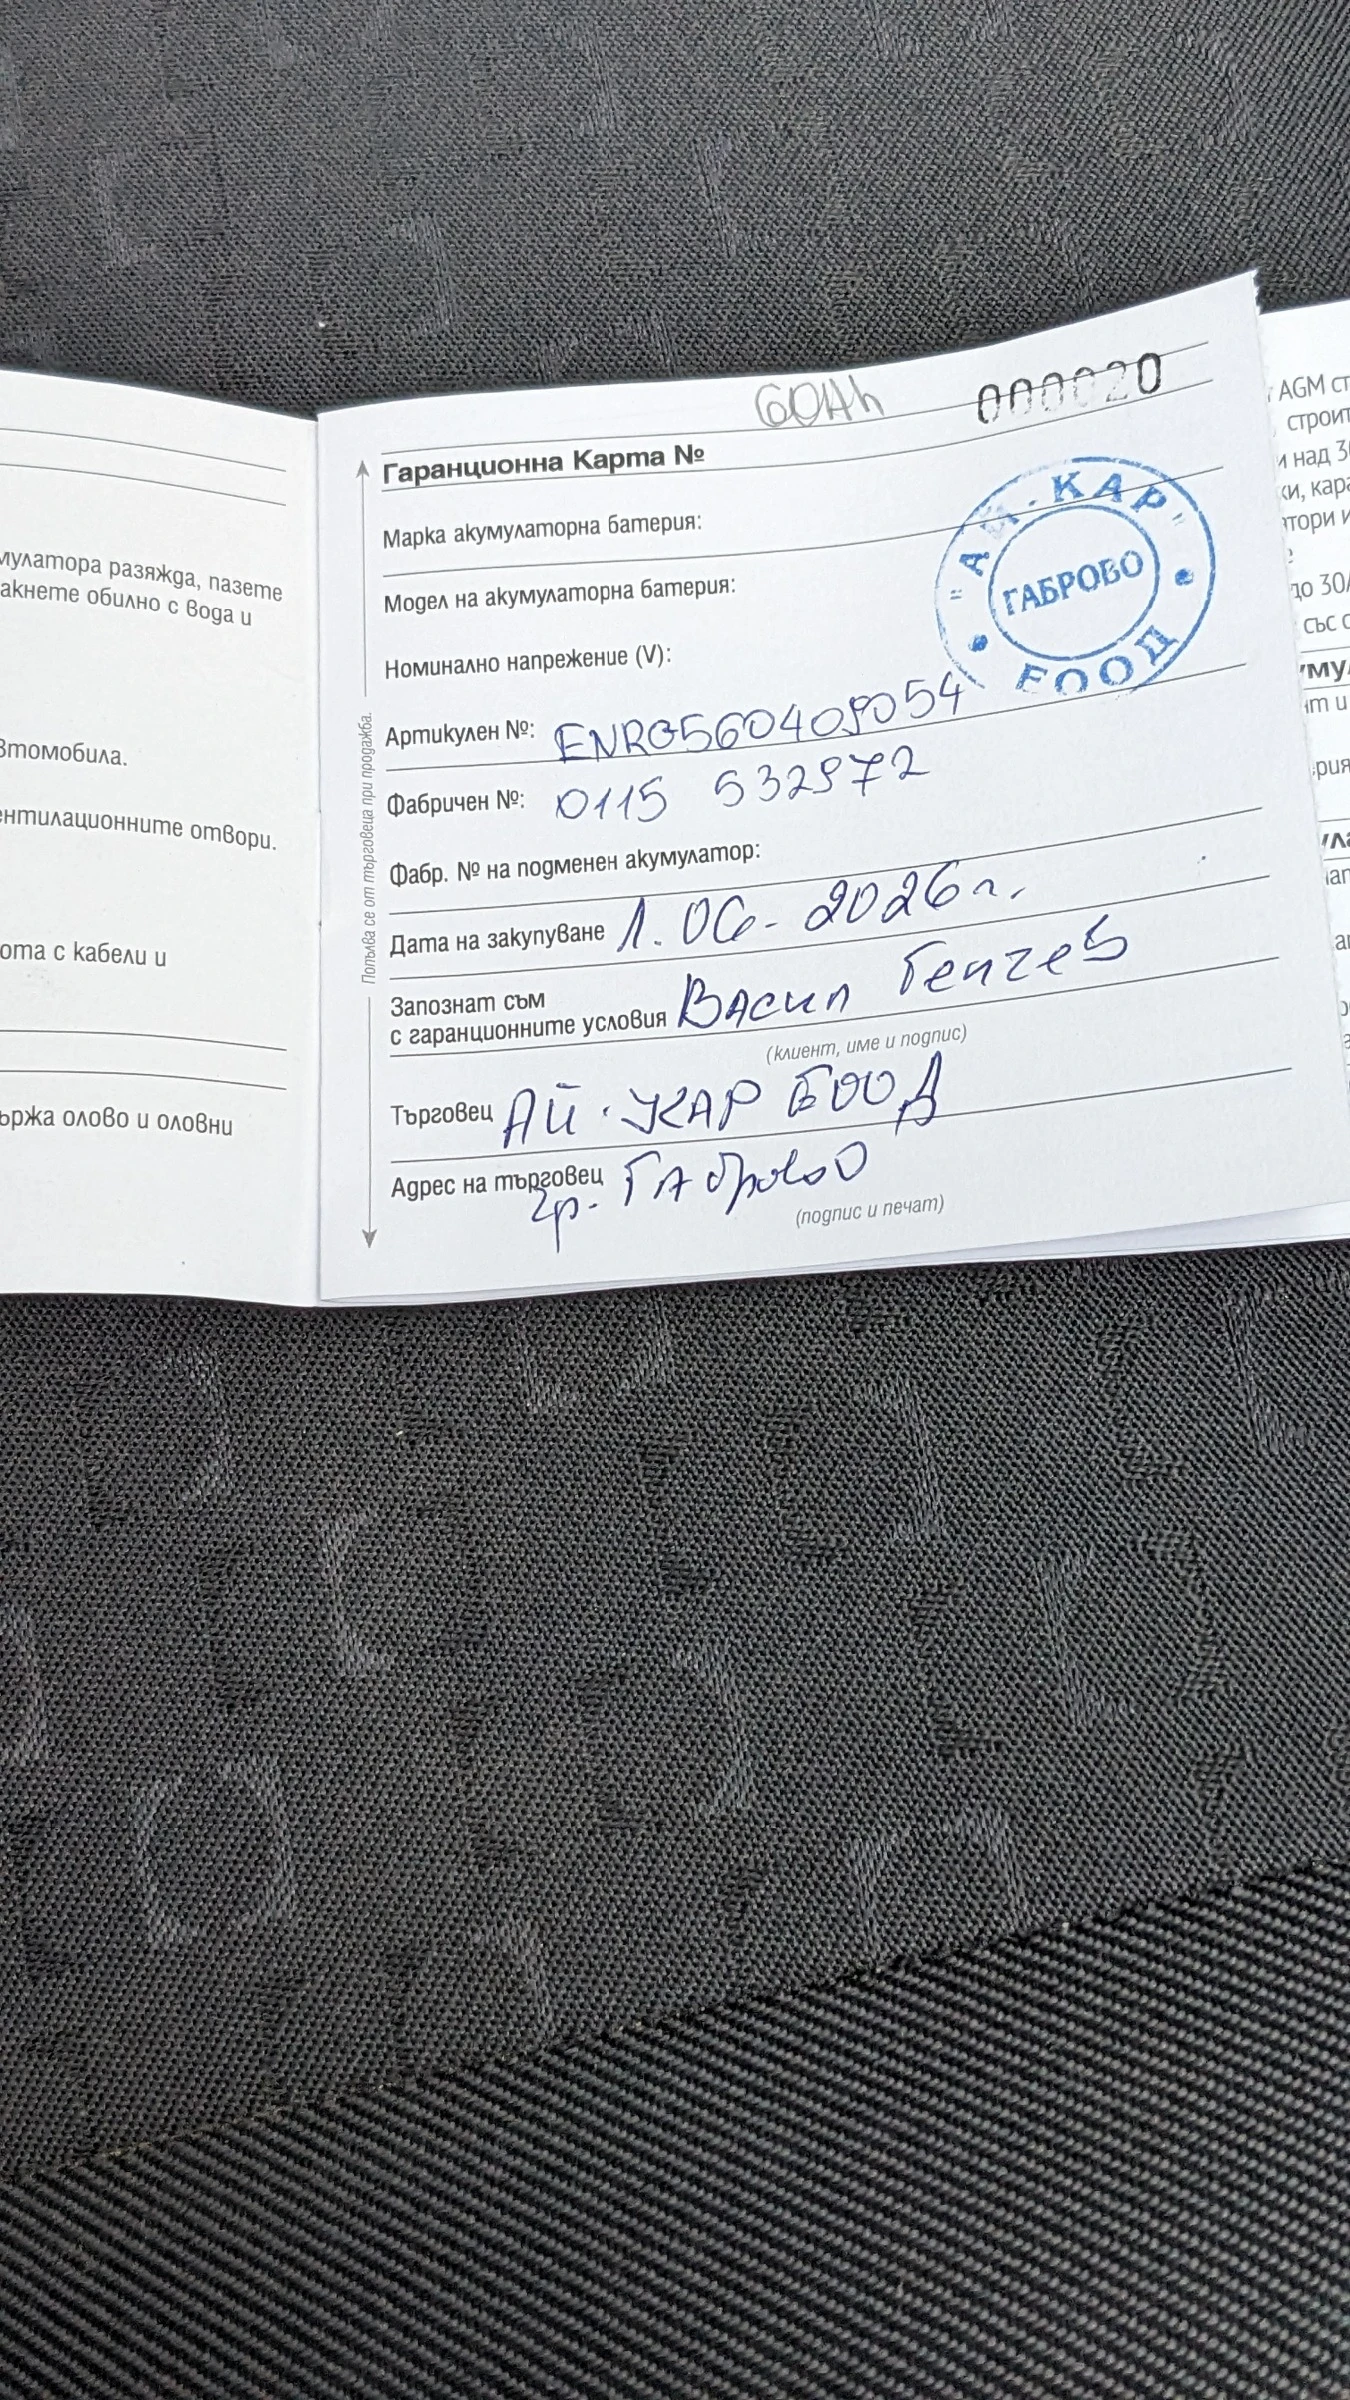 мулатора разяжда, пазете
акнете обилно с вода и
втомобила.
ентилационните отвори.
ота с кабели и
ържа олово и оловни
60Ah
000020
Гаранционна Карта №
Марка акумулаторна батерия:
Модел на акумулаторна батерия:
Номинално напрежение (V):
"АЙ-КАР"
ГАБРОВО
ЕООД
Артикулен №: ENRG560409054
Фабричен №: 0115 532972
Фабр. № на подменен акумулатор:
Дата на закупуване 1.06-2026г.
Запознат съм
с гаранционните условия Васил Генчев
(клиент, име и подпис)
Търговец АЙ-КАР ЕООД
Адрес на търговец гр. Габрово
(подпис и печат)
Попълва се от търговеца при продажба.
AGM ст
строит
и над 30
ки, кара
атори и
до 30А
със с